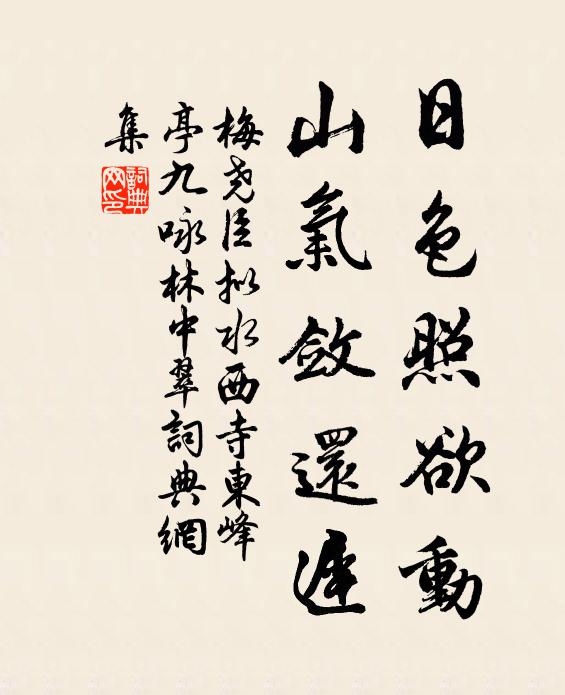 日色照欲動
山氣斂還遲
梅堯臣擬水西寺東峰
亭九咏林中翠詞典網
集
詞典
網印